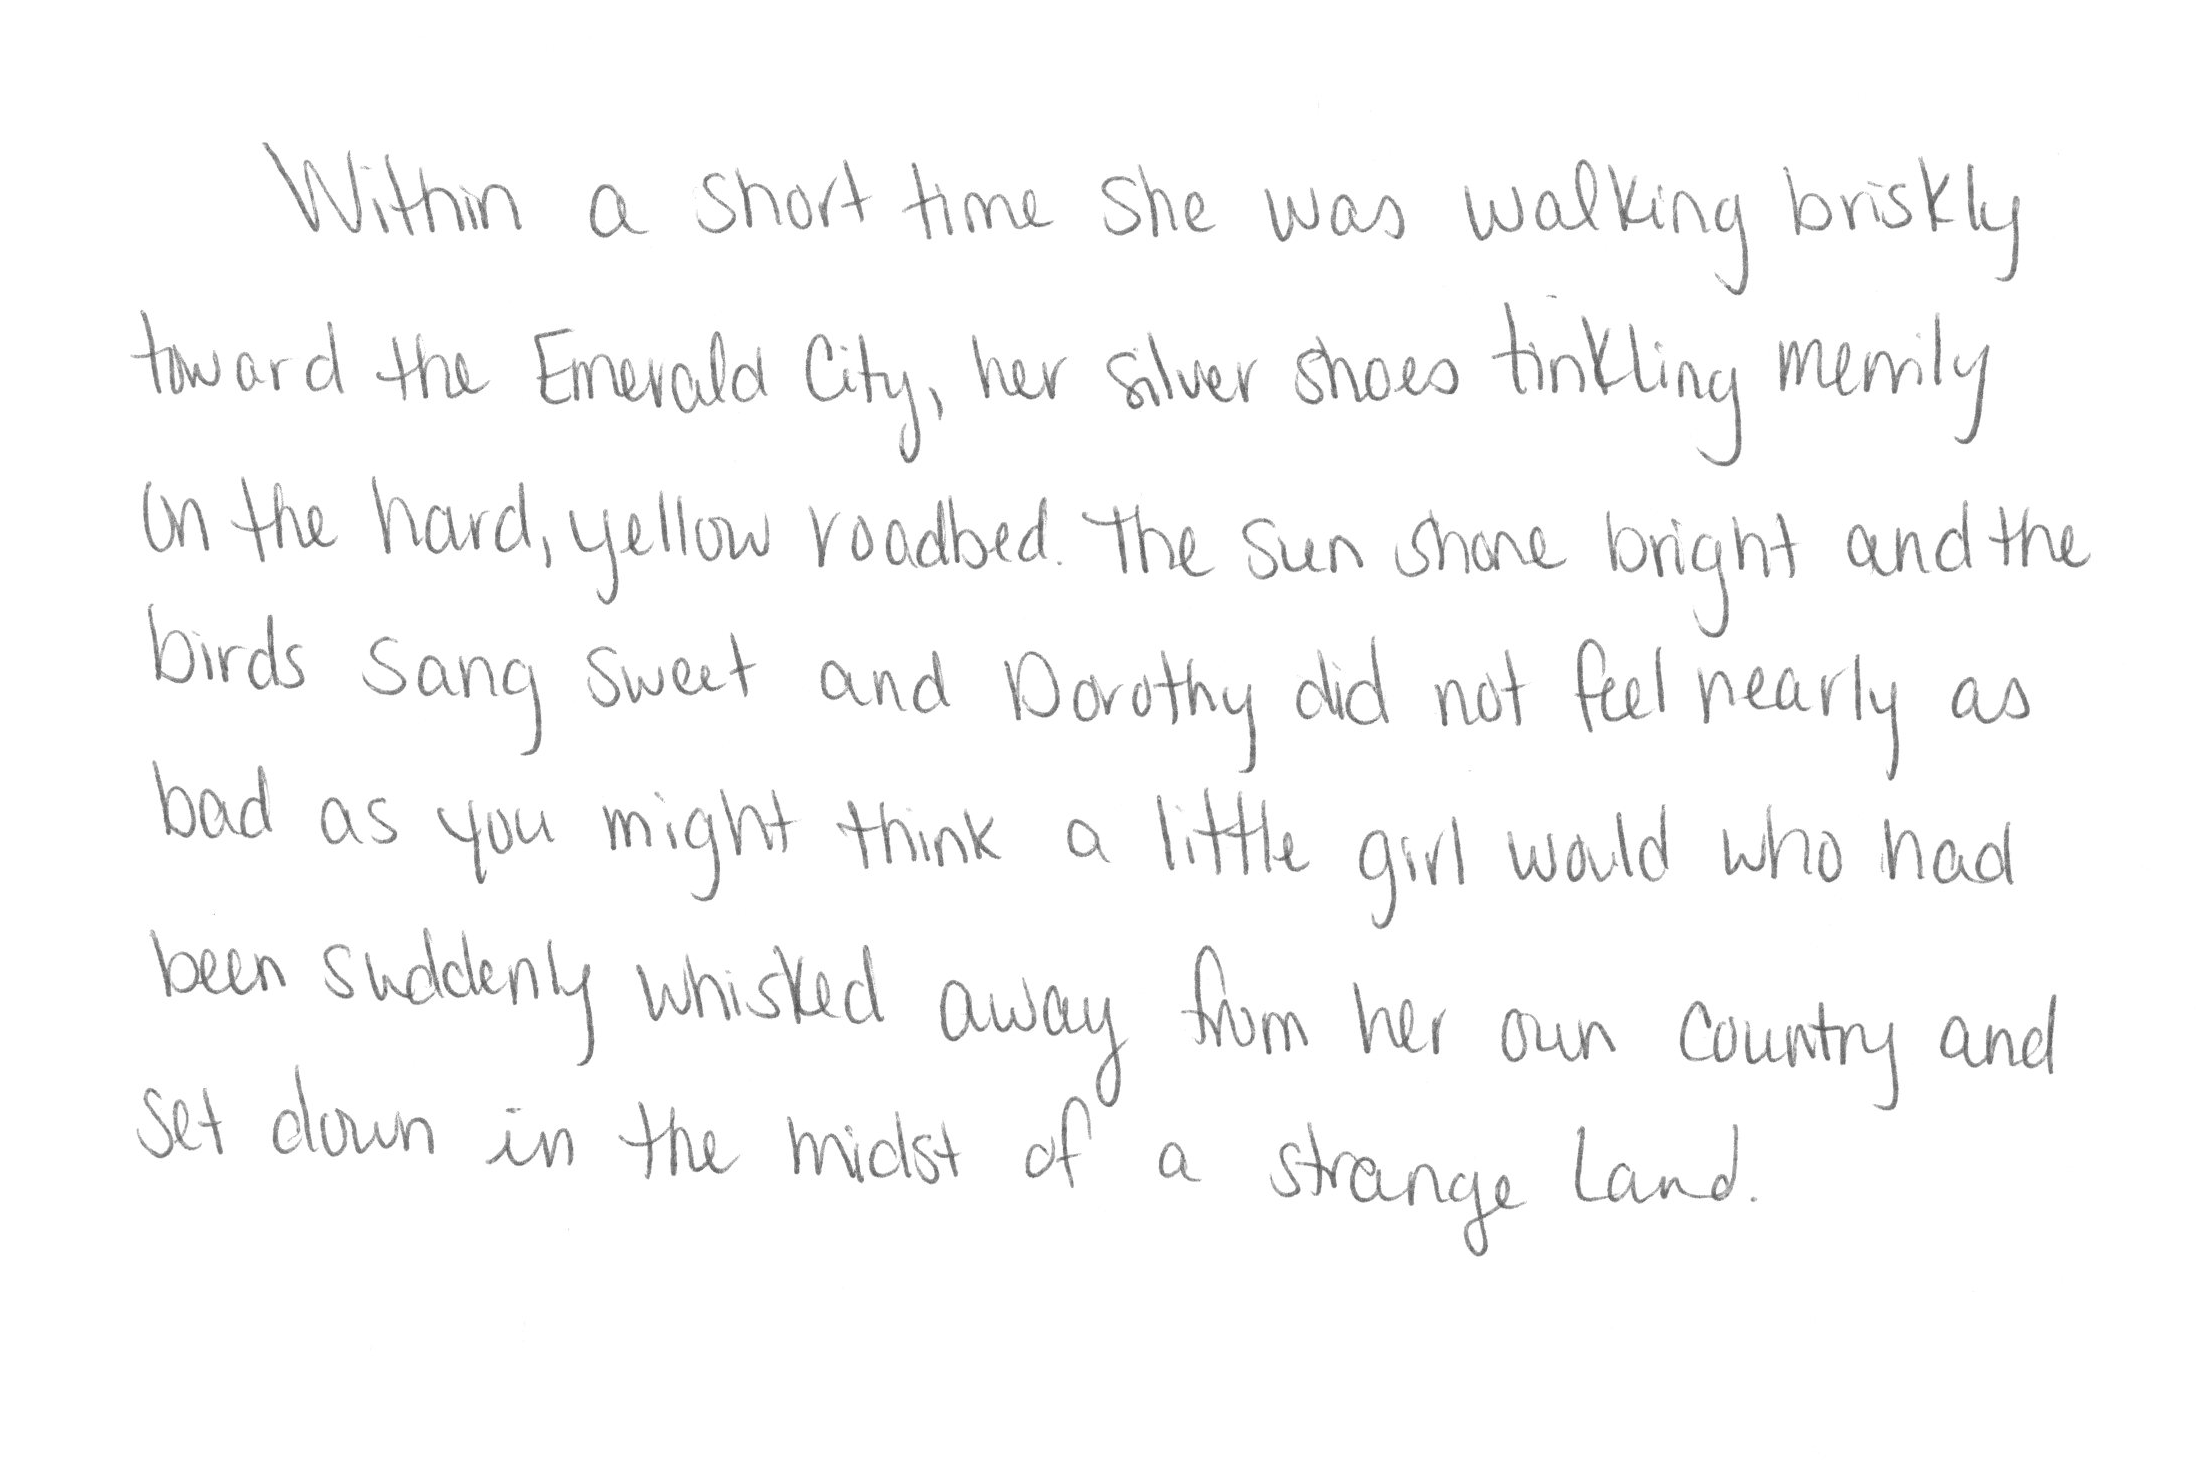 Within a short time she was walking briskly
toward the Emerald City, her silver shoes tinkling merrily
on the hard, yellow roadbed. The sun shone bright and the
birds sang sweet and Dorothy did not feel nearly as
bad as you might think a little girl would who had
been suddenly whisked away from her own country and
set down in the midst of a strange land.